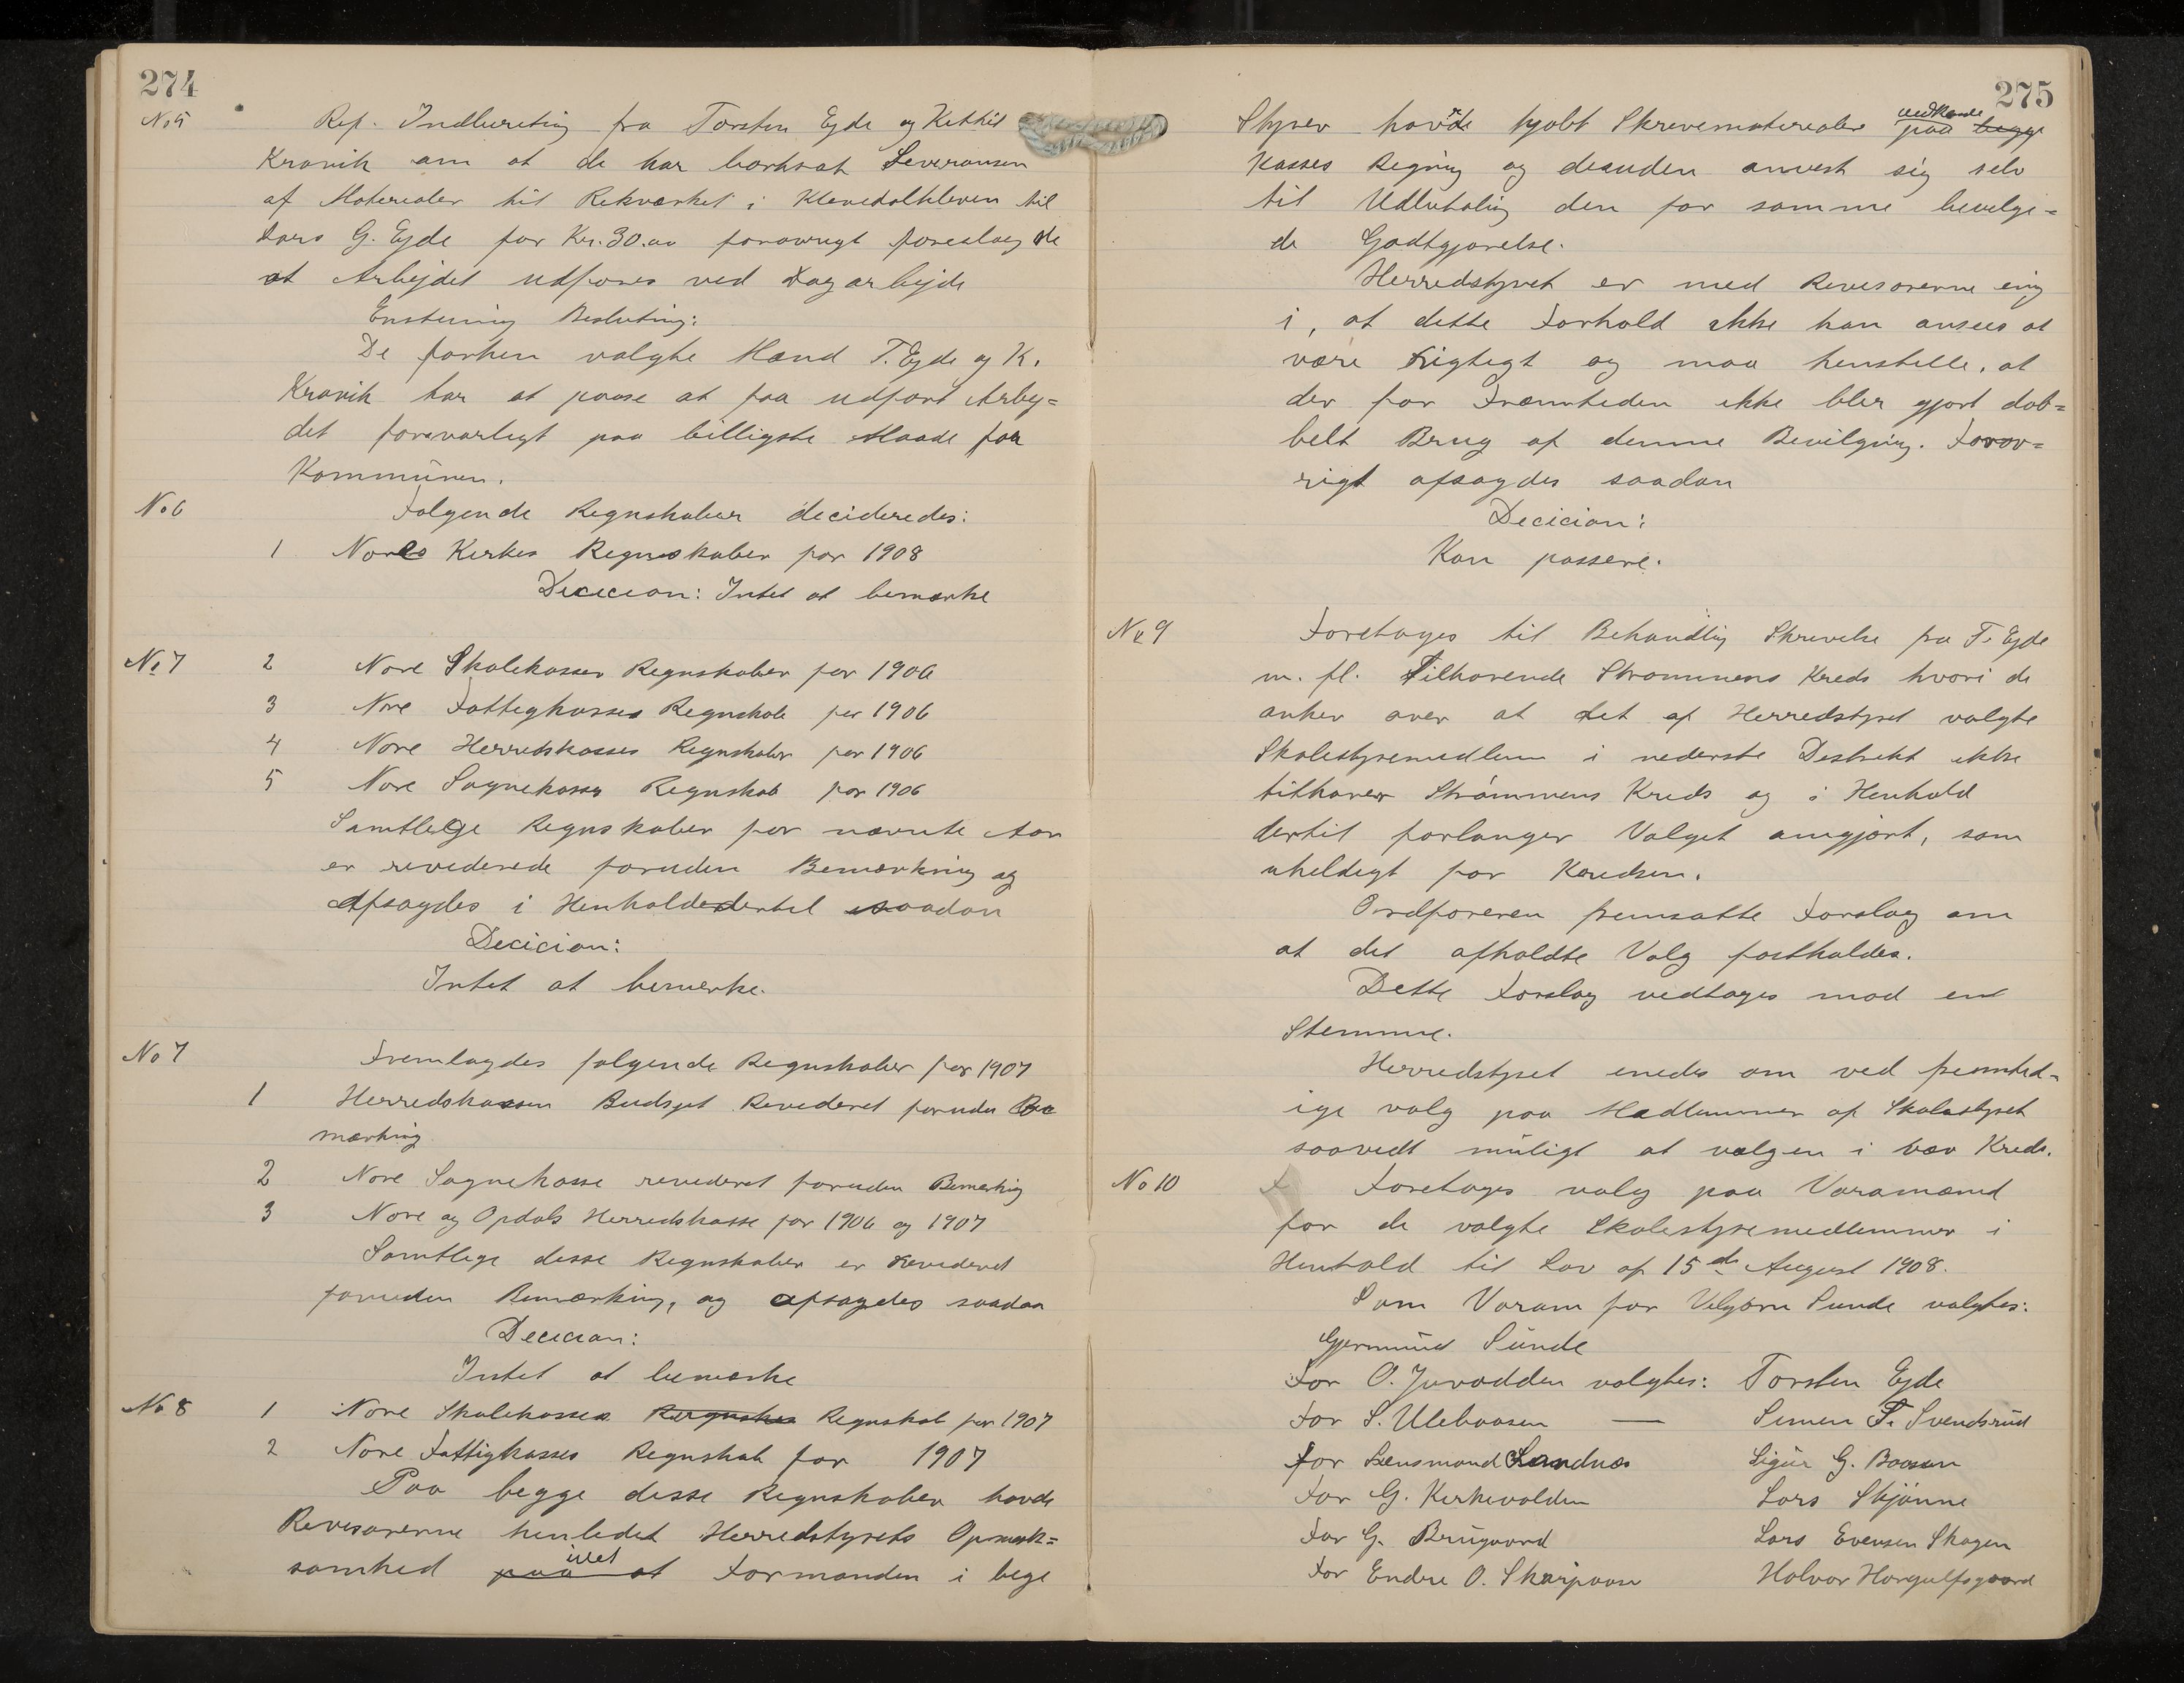 274
No 5 Ref. Indberetning fra Torsten Ejde og Kettil
Kravik om at de har bortsat Leveransen
af Materialer til Rekværket i Klevedalkleven til
Lars G. Ejde for Kr. 30.00 forøvrigt foreslog de
at Arbejdet udføres ved Dagarbejde
Enstemig Beslutning:
De forhen valgte Mænd T. Ejde og K.
Kravik har at passe at faa udført Arbej=
det forsvarligt paa billigste Maade for
Kommünen.
No 6 Følgende Regnskaber decideredes:
1 Nores Kirkes Regnskaber for 1908
Decicion: Intet at bemærke
No 7 2 Nore Skolekasses Regnskaber for 1906
3 Nore Fattigkasses Regnskab for 1906
4 Nore Herredskasses Regnskaber for 1906
5 Nore Sognekasses Regnskab for 1906
Samtlege Regnskaber for nævnte Aar
er reviderede foruden Bemærkning og
Afsagdes i Henhold dertil saadan
Decicion:
Intet at bemærke.
No 7 Fremlagdes følgende Regnskaber for 1907
1 Herredskassen Budsjet Revideret foruden Be
mærkning
2 Nore Sognekasse revideret foruden Bemærkning
3 Nore og Opdals Herredskasse for 1906 og 1907
Samtlige disse Regnskaber er revideret
foruden Bemærkning, og afsagdes saadan
Decicion:
Intet at bemærke
No 8 1 Nore Skolekasses Regnskab for 1907
2 Nore Fattigkasses Regnskab for 1907
Paa begge disse Regnskaber havde
Revisorerne henledet Herredstyrets Opmærk=
somhed paa at Formanden i bege
275
Styrer havde kjøbt Skrivematerialer vedkomde paa begge
Kasses Regning og desuden anvist sig selv
til Udbetaling den for samme bevilge=
de Godtgjørelse.
Herredstyret er med Revisorerne enig
i, at dette Forhold ikke kan ansees at
være rigtigt og maa henstille, at
der for Fremtiden ikke blir gjort dob=
belt Brug af denne Bevilgning. Forøv=
rigt afsagdes saadan
Decicion:
Kan passere.
No 9 Foretoges til Behandling Skrivelse fra T. Ejde
m. fl. Tilhørende Strømmens Kreds hvori de
anker over at det af Herredstyret valgte
Skolestyremedlem i nederste Destrikt ikke
tilhører Strømmens Kreds og i Henhold
dertil forlanger Valget omgjort, som
uheldigt for Kredsen.
Ordføreren fremsatte Forslag om
at det afholdte Valg fastholdes.
Dette Forslag vedtoges mod en
Stemme.
Herredstyret enedes om ved fremtid=
ige valg paa Medlemmer af Skolestyret
saavidt muligt at vælgen i hver Kreds.
No 10 Foretoges valg paa Varamænd
for de valgte Skolestyremedlemmer i
Henhold til Lov af 15de August 1908.
Som Varam for Velgjørn Sunde valgtes:
Gjermünd Sünde
For O. Juvodden valgtes: Torsten Ejde
For S. Ulebaasen — Simen T. Svendsrüd
for Lensmand Landnæs Sigür G. Baasen
For G. Kirkevolden Lars Skjønne
For G. Brügaard Lars Evensen Skogen
For Endre O. Skarpaas Halvor Horgulfsgaard